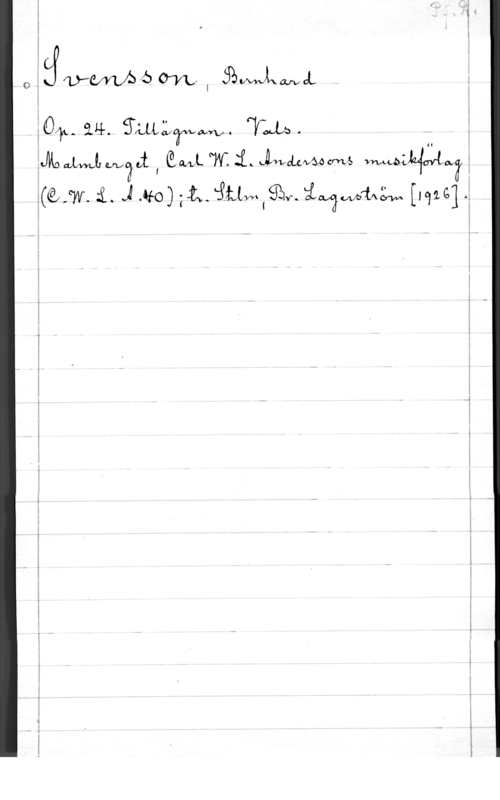 Pf. R.
Svensson, Bernhard
Op. 24. Tillägnan. Vals.
Malmberget, Carl W. L. Anderssons musikförlag
(C.W. L. A.40); tr. Sthlm, Br. Lagerström [1926].